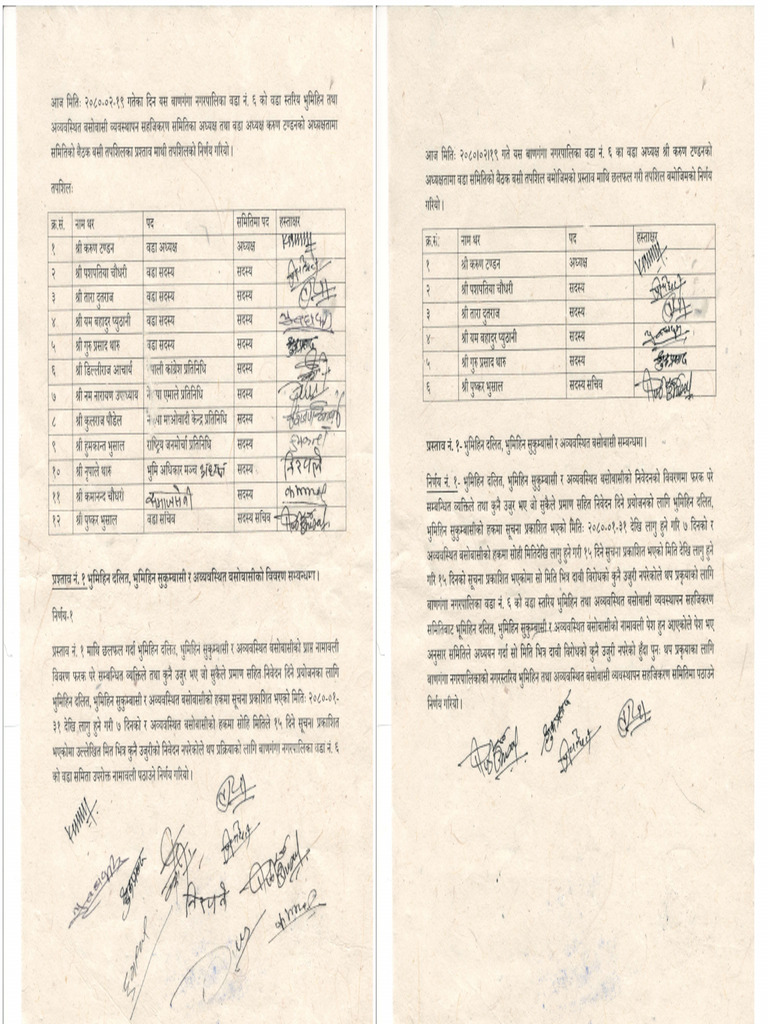 आज मितिः २०८०-०२-१९ गतेका दिन यस बाणगंगा नगरपालिका वडा नं. ६ को वडा स्तरिय भुमिहिन तथा
अव्यवस्थित बसोबासी व्यवस्थापन सहजिकरण समितिका अध्यक्ष तथा वडा अध्यक्ष करुण टण्डनको अध्यक्षतामा
समितिको बैठक बसी तपशिलका प्रस्ताव माथी तपशिलको निर्णय गरियो ।
तपशिलः
क्र.सं. नाम थर पद समितिमा पद हस्ताक्षर
१ श्री करुण टण्डन वडा अध्यक्ष अध्यक्ष
२ श्री पशपतिया चौधरी वडा सदस्य सदस्य
३ श्री तारा दुतराज वडा सदस्य सदस्य
४ श्री यम बहादुर प्युठानी वडा सदस्य सदस्य
५ श्री गुरु प्रसाद थारु वडा सदस्य सदस्य
६ श्री डिल्लीराज आचार्य पाली कांग्रेश प्रतिनिधि सदस्य
७ श्री नम नारायण उपाध्याय एमाले प्रतिनिधि सदस्य
८ श्री कुलराज पौडेल माओवादी केन्द्र प्रतिनिधि सदस्य
९ श्री हुमकान्त भुसाल राष्ट्रिय जनमोर्चा प्रतिनिधि सदस्य
१० श्री नृपाले थारु भुमि अधिकार मञ्च सदस्य
११ श्री कमानन्द चौधरी सदस्य
१२ श्री पुष्कर भुसाल वडा सचिव सदस्य सचिव
प्रस्ताव नं. १ भुमिहिन दलित, भुमिहिन सुकुम्बासी र अव्यवस्थित बसोबासीको विवरण सम्वन्धमा ।
निर्णय-१
प्रस्ताव नं. १ माथि छलफल गर्दा भुमिहिन दलित, भुमिहिन सुकुम्बासी र अव्यवस्थित बसोबासीको प्राप्त नामावली
विवरण फरक परे सम्बन्धित व्यक्तिले तथा कुनै उजुर भए जो सुकैले प्रमाण सहित निवेदन दिने प्रयोजनका लागि
भुमिहिन दलित, भुमिहिन सुकुम्बासी र अव्यवस्थित बसोबासीको हकमा सूचना प्रकाशित भएको मितिः २०८०-०१-
३१ देखि लागु हुने गरी ७ दिनको र अव्यवस्थित बसोबासीको हकमा सोहि मितिले १५ दिने सूचना प्रकाशित
भएकोमा उल्लेखित मित भित्र कुनै उजुरीको निवेदन नपरेकोले थप प्रक्रियाको लागि बाणगंगा नगरपालिका वडा नं. ६
को वडा समिता उपरोक्त नामावली पठाउने निर्णय गरियो ।
आज मितिः २०८०।०२।१९ गते यस बाणगंगा नगरपालिका वडा नं. ६ का वडा अध्यक्ष श्री करुण टण्डनको
अध्यक्षतामा वडा समितिको बैठक बसी तपशिल बमोजिमको प्रस्ताव माथि छलफल गरी तपशिल बमोजिमको निर्णय
गरियो ।
क्र.सं. नाम थर पद हस्ताक्षर
१ श्री करुण टण्डन अध्यक्ष
२ श्री पशपतिया चौधरी सदस्य
३ श्री तारा दुतराज सदस्य
४ श्री यम बहादुर प्युठानी सदस्य
५ श्री गुरु प्रसाद थारु सदस्य
६ श्री पुष्कर भुसाल सदस्य सचिव
प्रस्ताव नं. १- भुमिहिन दलित, भुमिहिन सुकुम्बासी र अव्यवस्थित बसोबासी सम्बन्धमा ।
निर्णय नं. १- भुमिहिन दलित, भुमिहिन सुकुम्बासी र अव्यवस्थित बसोबासीको निवेदनको विवरणमा फरक परे
सम्बन्धित व्यक्तिले तथा कुनै उजुर भए जो सुकैले प्रमाण सहित निवेदन दिने प्रयोजनको लागि भुमिहिन दलित,
भुमिहिन सुकुम्बासीको हकमा सूचना प्रकाशित भएको मितिः २०८०-०१-३१ देखि लागु हुने गरि ७ दिनको र
अव्यवस्थित बसोबासीको हकमा सोही मितिदेखि लागु हुने गरी १५ दिने सूचना प्रकाशित भएको मिति देखि लागु हुने
गरि १५ दिनको सूचना प्रकाशित भएकोमा सो मिति भित्र दावी विरोधको कुनै उजुरी नपरेकोले थप प्रकृयाको लागि
बाणगंगा नगरपालिका वडा नं. ६ को वडा स्तरिय भुमिहिन तथा अव्यवस्थित बसोबासी व्यवस्थापन सहजिकरण
समितिबाट भुमिहिन दलित, भुमिहिन सुकुम्बासी र अव्यवस्थित बसोबासीको नामावली पेश हुन आएकोले पेश भए
अनुसार समितिले अध्ययन गर्दा सो मिति भित्र दावी विरोधको कुनै उजुरी नपरेको हुँदा पुनः थप प्रकृयाका लागि
बाणगंगा नगरपालिकाको नगरस्तरिय भुमिहिन तथा अव्यवस्थित बसोबासी व्यवस्थापन सहजिकरण समितिमा पठाउने
निर्णय गरियो ।